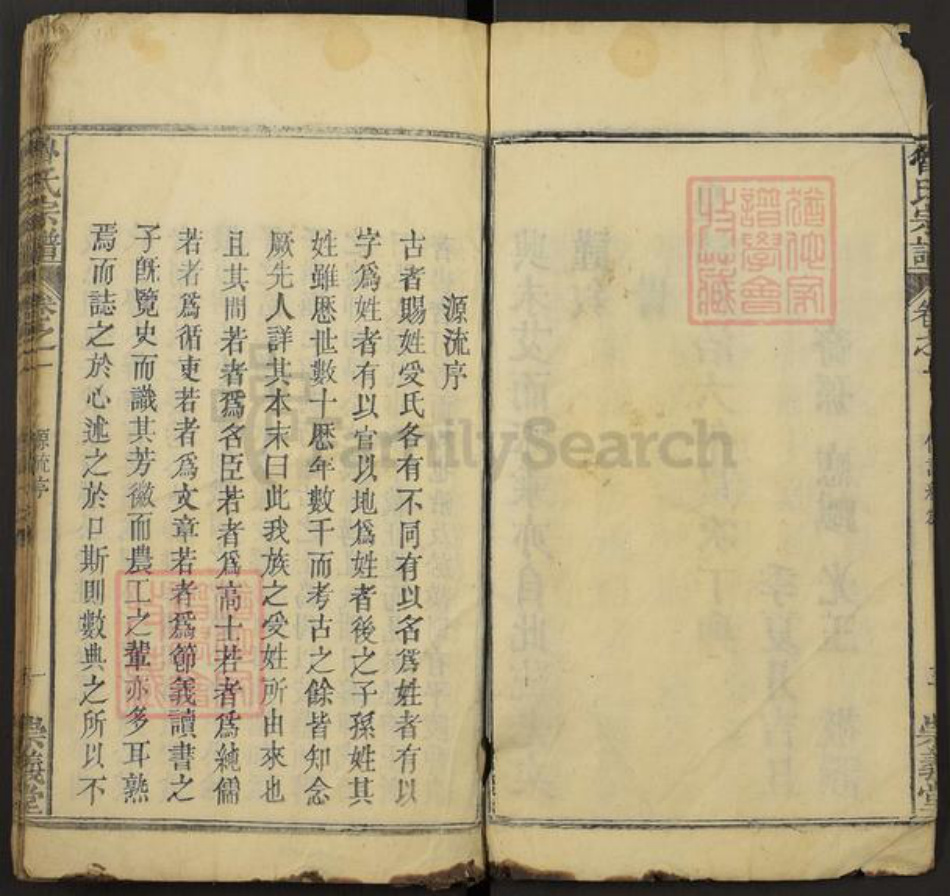 源流序
古者賜姓受氏各有不同有以名為姓者有以
字為姓者有以官以地為姓者後之子孫姓其
姓雖歷世數十歷年數千而考古之餘皆知念
厥先人詳其本末曰此我族之受姓所由來也
且其間若者為名臣若者為高士若者為純儒
若者為循吏若者為文章若者為節義讀書之
子既覽史而識其芳徽而農工之輩亦多耳熟
焉而誌之於心述之於口斯則數典之所以不
氏宗譜
卷之一
源流序
一
崇義堂
氏宗譜
崇義堂
譜學會
收藏
FamilySearch